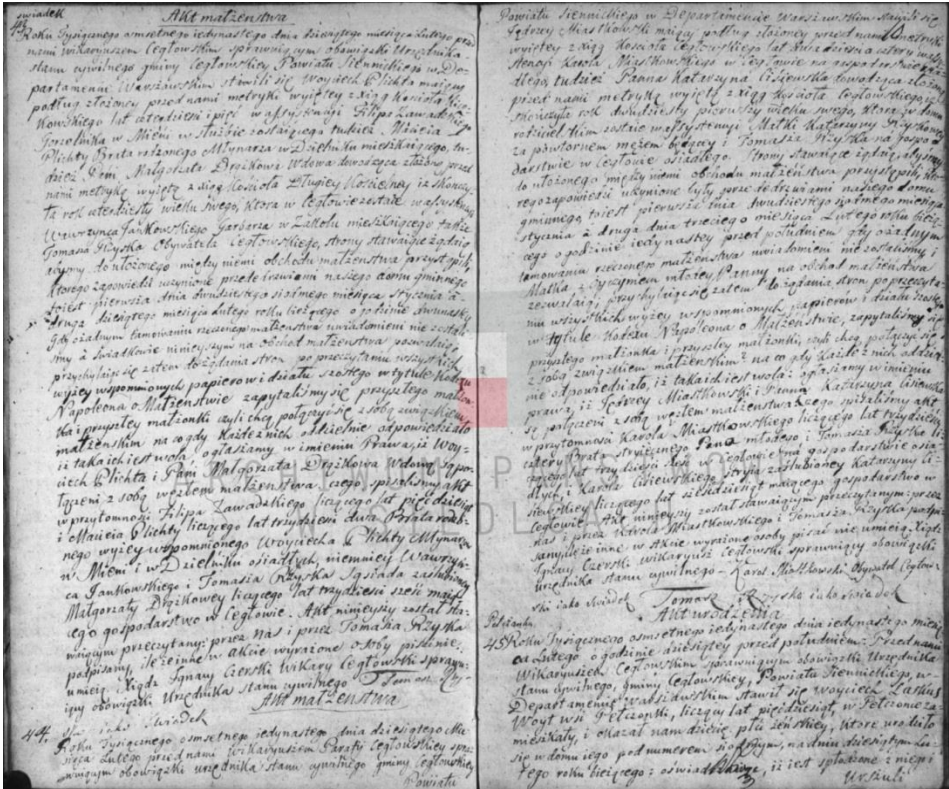 świadek
Akt małżeństwa
43 Roku Tysiącznego osmsetnego iedynastego dnia dziesiątego miesiąca Lutego przed
nami Wikaryuszem Cegłowskim sprawuiącym obowiązki Urzędnika
stanu cywilnego gminy Cegłowskiey Powiatu Siennickiego w De-
partamencie Warszawskim stawili się Woyciech Plichta maiący
podług złożoney przed nami metryki wyiętey z xiąg Kościoła
kowskiego lat czterdzieści i pięć w assystencyi Filipa Zawadzkiego
Gorzelnika w Mieni w służbie zostaiącego tudzież Macieia
Plichty Brata rodzonego Młynarza w Dzielniku mieszkaiącego, tu-
dzież Pani Małgorzata Drożkowa Wdowa dowodząca złożoną przed
nami metryką wyiętą z xiąg Kościoła Długiey Kościelney iż skończy-
ła rok czterdziesty wieku swego, ktora w Cegłowie zostaie w assystencyi
Wawrzynca Jankowskiego Garbarza w mieszkaiącego także
Tomasza Rżyska Obywatela Cegłowskiego, strony stawaiące żądaią
abyśmy do ułożonego między niemi obchodu małżeństwa przystąpili,
ktorego zapowiedzi uczynione przede drzwiami naszego domu gminnego
to iest pierwsza dnia dwudziestego siodmego miesiąca Stycznia a
druga dziesiątego miesiąca Lutego roku bieżącego o godzinie dwunastey
Gdy o żadnym tamowaniu rzeczonego małżeństwa uwiadomieni nie zosta-
liśmy a Świadkowie ninieyszym na obchod małżeństwa pozwalaią,
przychylaiąc się zatem do żądania stron po przeczytaniu wszystkich
wyżey wspomnionych papierow i działu szostego w tytule Kodexu
Napoleona o Małżeństwie zapytaliśmy się przyszłego małżon-
ka i przyszłey małżonki czyli chcą połączyć się z sobą związkiem
małżenskim na co gdy każde z nich oddzielnie odpowiedziało
iż taka ich iest wola, ogłaszamy w imieniu Prawa, iż Woy-
ciech Plichta i Pani Małgorzata Drożkowa Wdowa są po-
łączeni z sobą węzłem małżeństwa. Czego spisaliśmy Akt
w przytomności Filipa Zawadzkiego liczącego lat pięćdziesiąt
i Macieia Plichty liczącego lat trzydzieści dwa Brata rodzo-
nego wyżey wspomnionego Woyciecha Plichty Młynarza
w Mieni i w Dzielniku osiadłych, niemniey Wawrzyn-
ca Jankowskiego i Tomasza Rżyska Sąsiada zaślubioney
Małgorzaty Drożkowey liczącego lat trzydzieści sześć maią-
cego gospodarstwo w Cegłowie. Akt ninieyszy został sta-
waiącym przeczytany: przez nas i przez Tomasza Rżyska
podpisany, ile że inne w akcie wyrażone osoby pisać nie
umieią Xiądz Ignacy Czerski Wikary Cegłowski sprawu-
iący obowiązki Urzędnika stanu cywilnego Tomasz Rży-
ska iako świadek
Akt małżeństwa
44. Roku Tysiącznego osmsetnego iedynastego dnia dziesiątego mie-
siąca Lutego przed nami Wikaryuszem Parafii Cegłowskiey spra-
wuiącym obowiązki urzędnika stanu cywilnego gminy Cegłowskiey
Powiatu
Powiatu Siennickiego w Departamencie Warszawskim stawili się
Jędrzey Miastkowski maiący podług złożoney przed nami metryki
wyiętey z xiąg Kościoła Cegłowskiego lat dwadzieścia cztery w assy-
stencyi Karola Miastkowskiego w Cegłowie na gospodarstwie osia-
dłego, tudzież Panna Katarzyna Cisiewska dowodząca złożoną
przed nami metryką wyiętą z xiąg Kościoła Cegłowskiego, iż
skończyła rok dwudziesty pierwszy wieku swego, ktora w domu
rodzicielskim zostaie w assystencyi Matki Katarzyny Rżyskowy
za powtornem mężem będącey i Tomasza Rżyska na Gospo-
darstwie w Cegłowie osiadłego. Strony stawaiące żądaią abyśmy
do ułożonego między niemi obchodu małżeństwa przystąpili, kto-
rego zapowiedzi uczynione były przede drzwiami naszego domu
gminnego, to iest pierwsza dnia dwudziestego siodmego miesiąca
stycznia a druga dnia trzeciego miesiąca Lutego roku bieżą-
cego o godzinie iedynastey przed południem gdy o żadnym
tamowaniu rzeczonego małżeństwa uwiadomieni nie zostaliśmy i
Matka z Oyczymem młodey Panny na obchod małżeństwa
zezwalaią, przychylaiąc się zatem do żądania stron po przeczyta-
niu wszystkich wyżey wspomnionych papierow i działu szoste-
go w tytule Kodexu Napoleona o Małżeństwie, zapytaliśmy się
przyszłego małżonka i przyszłey małżonki, czyli chcą połączyć się
z sobą związkiem małżenskim? na co gdy każde z nich oddziel-
nie odpowiedziało, iż taka ich iest wola: ogłaszamy w imieniu
prawa, iż Jędrzey Miastkowski i Panna Katarzyna Cisiewska
są połączeni z sobą węzłem małżeństwa. Czego spisaliśmy akt
w przytomności Karola Miastkowskiego liczącego lat trzydzieści
cztery Brata stryiecznego Pana młodego i Tomasza Rżyska li-
czącego lat trzydzieści sześć w Cegłowie na gospodarstwie osia-
dłych, i Karola Cisiewskiego Stryia zaślubioney Katarzyny Ci-
siewskiey liczącego lat sześćdziesiąt maiącego gospodarstwo w
Cegłowie. Akt ninieyszy został stawaiącym przeczytanym: przez
nas i przez Karola Miastkowskiego i Tomasza Rżyska podpi-
sany, ile że inne w Akcie wyrażone osoby pisać nie umieią. Xiądz
Ignacy Czerski Wikaryusz Cegłowski sprawuiący obowiązki
urzędnika stanu cywilnego – Karol Miastkowski Obywatel Cegłow-
ski iako świadek Tomasz Rżyska iako świadek
Akt urodzenia
45 Roku Tysiącznego osmsetnego iedynastego dnia iedynastego miesią-
ca Lutego o godzinie dziesiątey przed południem: Przed nami
Wikaryuszem Cegłowskim sprawuiącym obowiązki Urzędnika
stanu cywilnego, gminy Cegłowskiey, Powiatu Siennickiego, w
Departamencie Warszawskim stawił się Woyciech Laskus
Woyt wsi Pełczonki, liczący lat pięćdziesiąt, w Pełczonce za-
mieszkały, i okazał nam dziecię płci żeńskiey, ktore urodziło
się w domu iego pod numerem siodmym, na dniu dziesiątym Lu-
tego roku bieżącego: oświadczaiąc, iż iest spłodzone z niego i
Urszuli